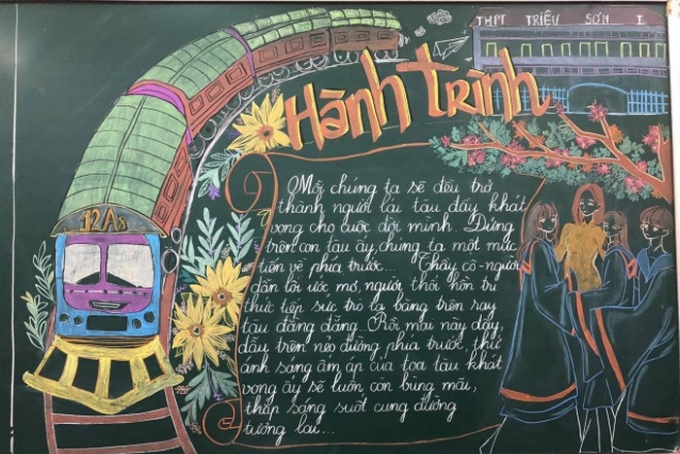 THPT TRIỆU SƠN I
Hành trình
12A3
Mỗi chúng ta sẽ đều trở
thành người lái tàu đầy khát
vọng cho cuộc đời mình. Đứng
trên con tàu ấy, chúng ta một mực
tiến về phía trước... Thầy cô-người
dẫn lối ước mơ, người thổi hồn tri
thức tiếp sức trò ta băng trên ray
tàu đằng đẵng. Rồi mai này đây,
đây trên nẻo đường phía trước, thứ
ánh sáng ấm áp của toa tàu khát
vọng ấy sẽ luôn còn bùng mãi,
thắp sáng suốt cung đường
tương lai...